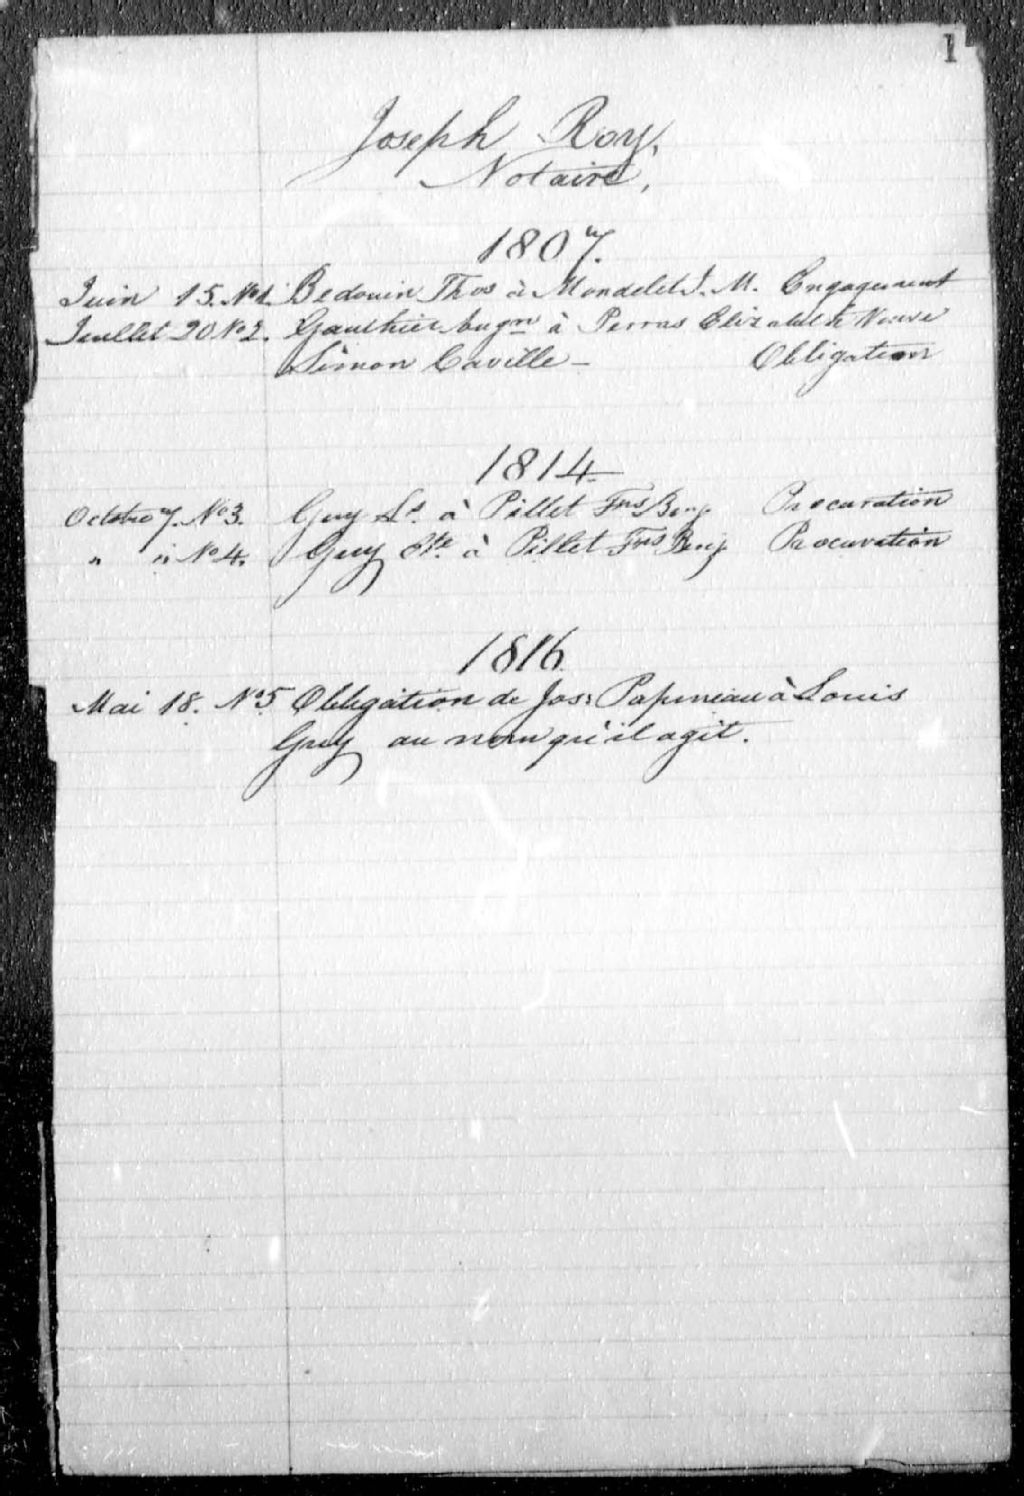 1
Joseph Roy,
Notaire,
1807.
Juin 15. No 1. Bedouin Thos à Mondelet J. M. Engagement
Juillet 20 No 2. Gauthier à Perras Elizabeth Veuve
Simon Caville - Obligation
1814
Octobre 7. No 3. Guy Ls. à Pillet Fns Benj. Procuration
" " No 4. Guy Ete à Pillet Fns Benj. Procuration
1816
Mai 18. No 5 Obligation de Jos: Papineau à Louis
Guy au nom qu'il agit.